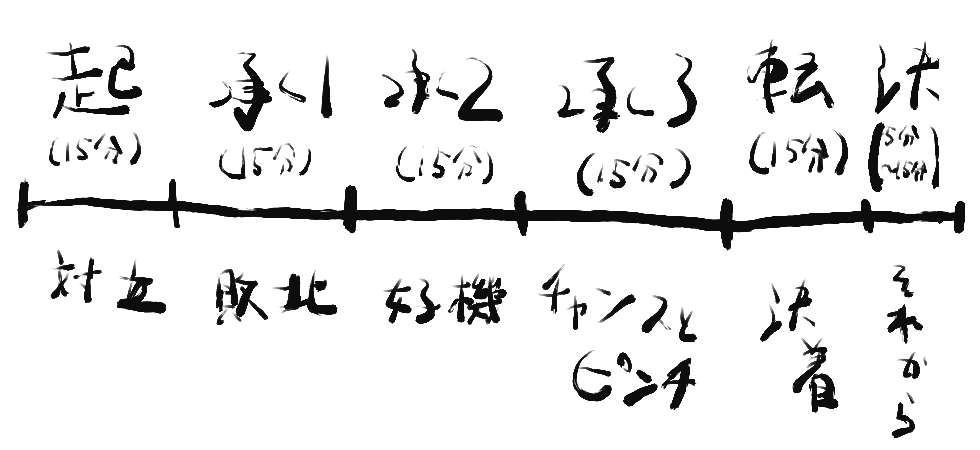 起 承1 承2 承3 転 決
(15分) (15分) (15分) (15分) (15分) (5分
~15分)
対立 敗北 好機 チャンスと 決 それから
ピンチ 着